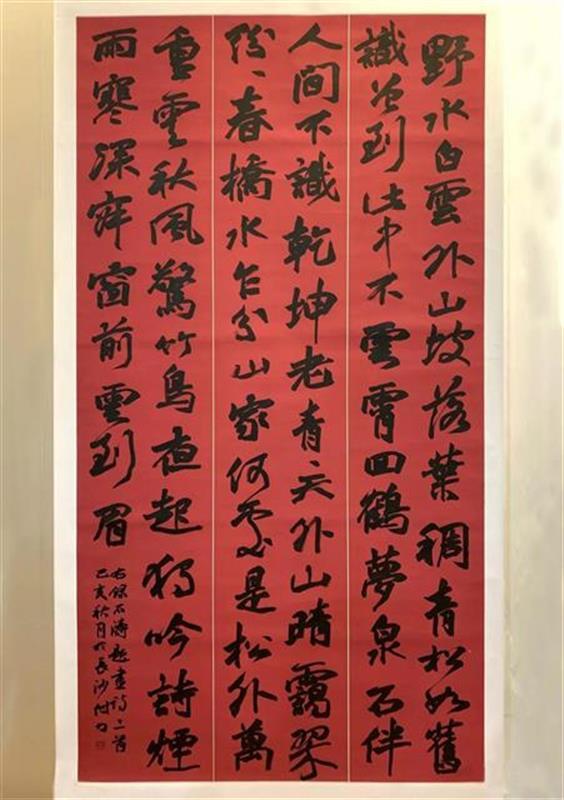 野水白雲外山坡落葉稠青松如舊
識曾到此中不雲霄回鶴夢泉石伴
人間不識乾坤老青〻天外山晴靄翠
紛〻春橋水乍分山家何處是松外萬
重雲秋風驚竹鳥夜起獨吟詩煙
雨寒深窗前雲到眉
右錄石濤題畫詩二首
己亥秋月於長沙